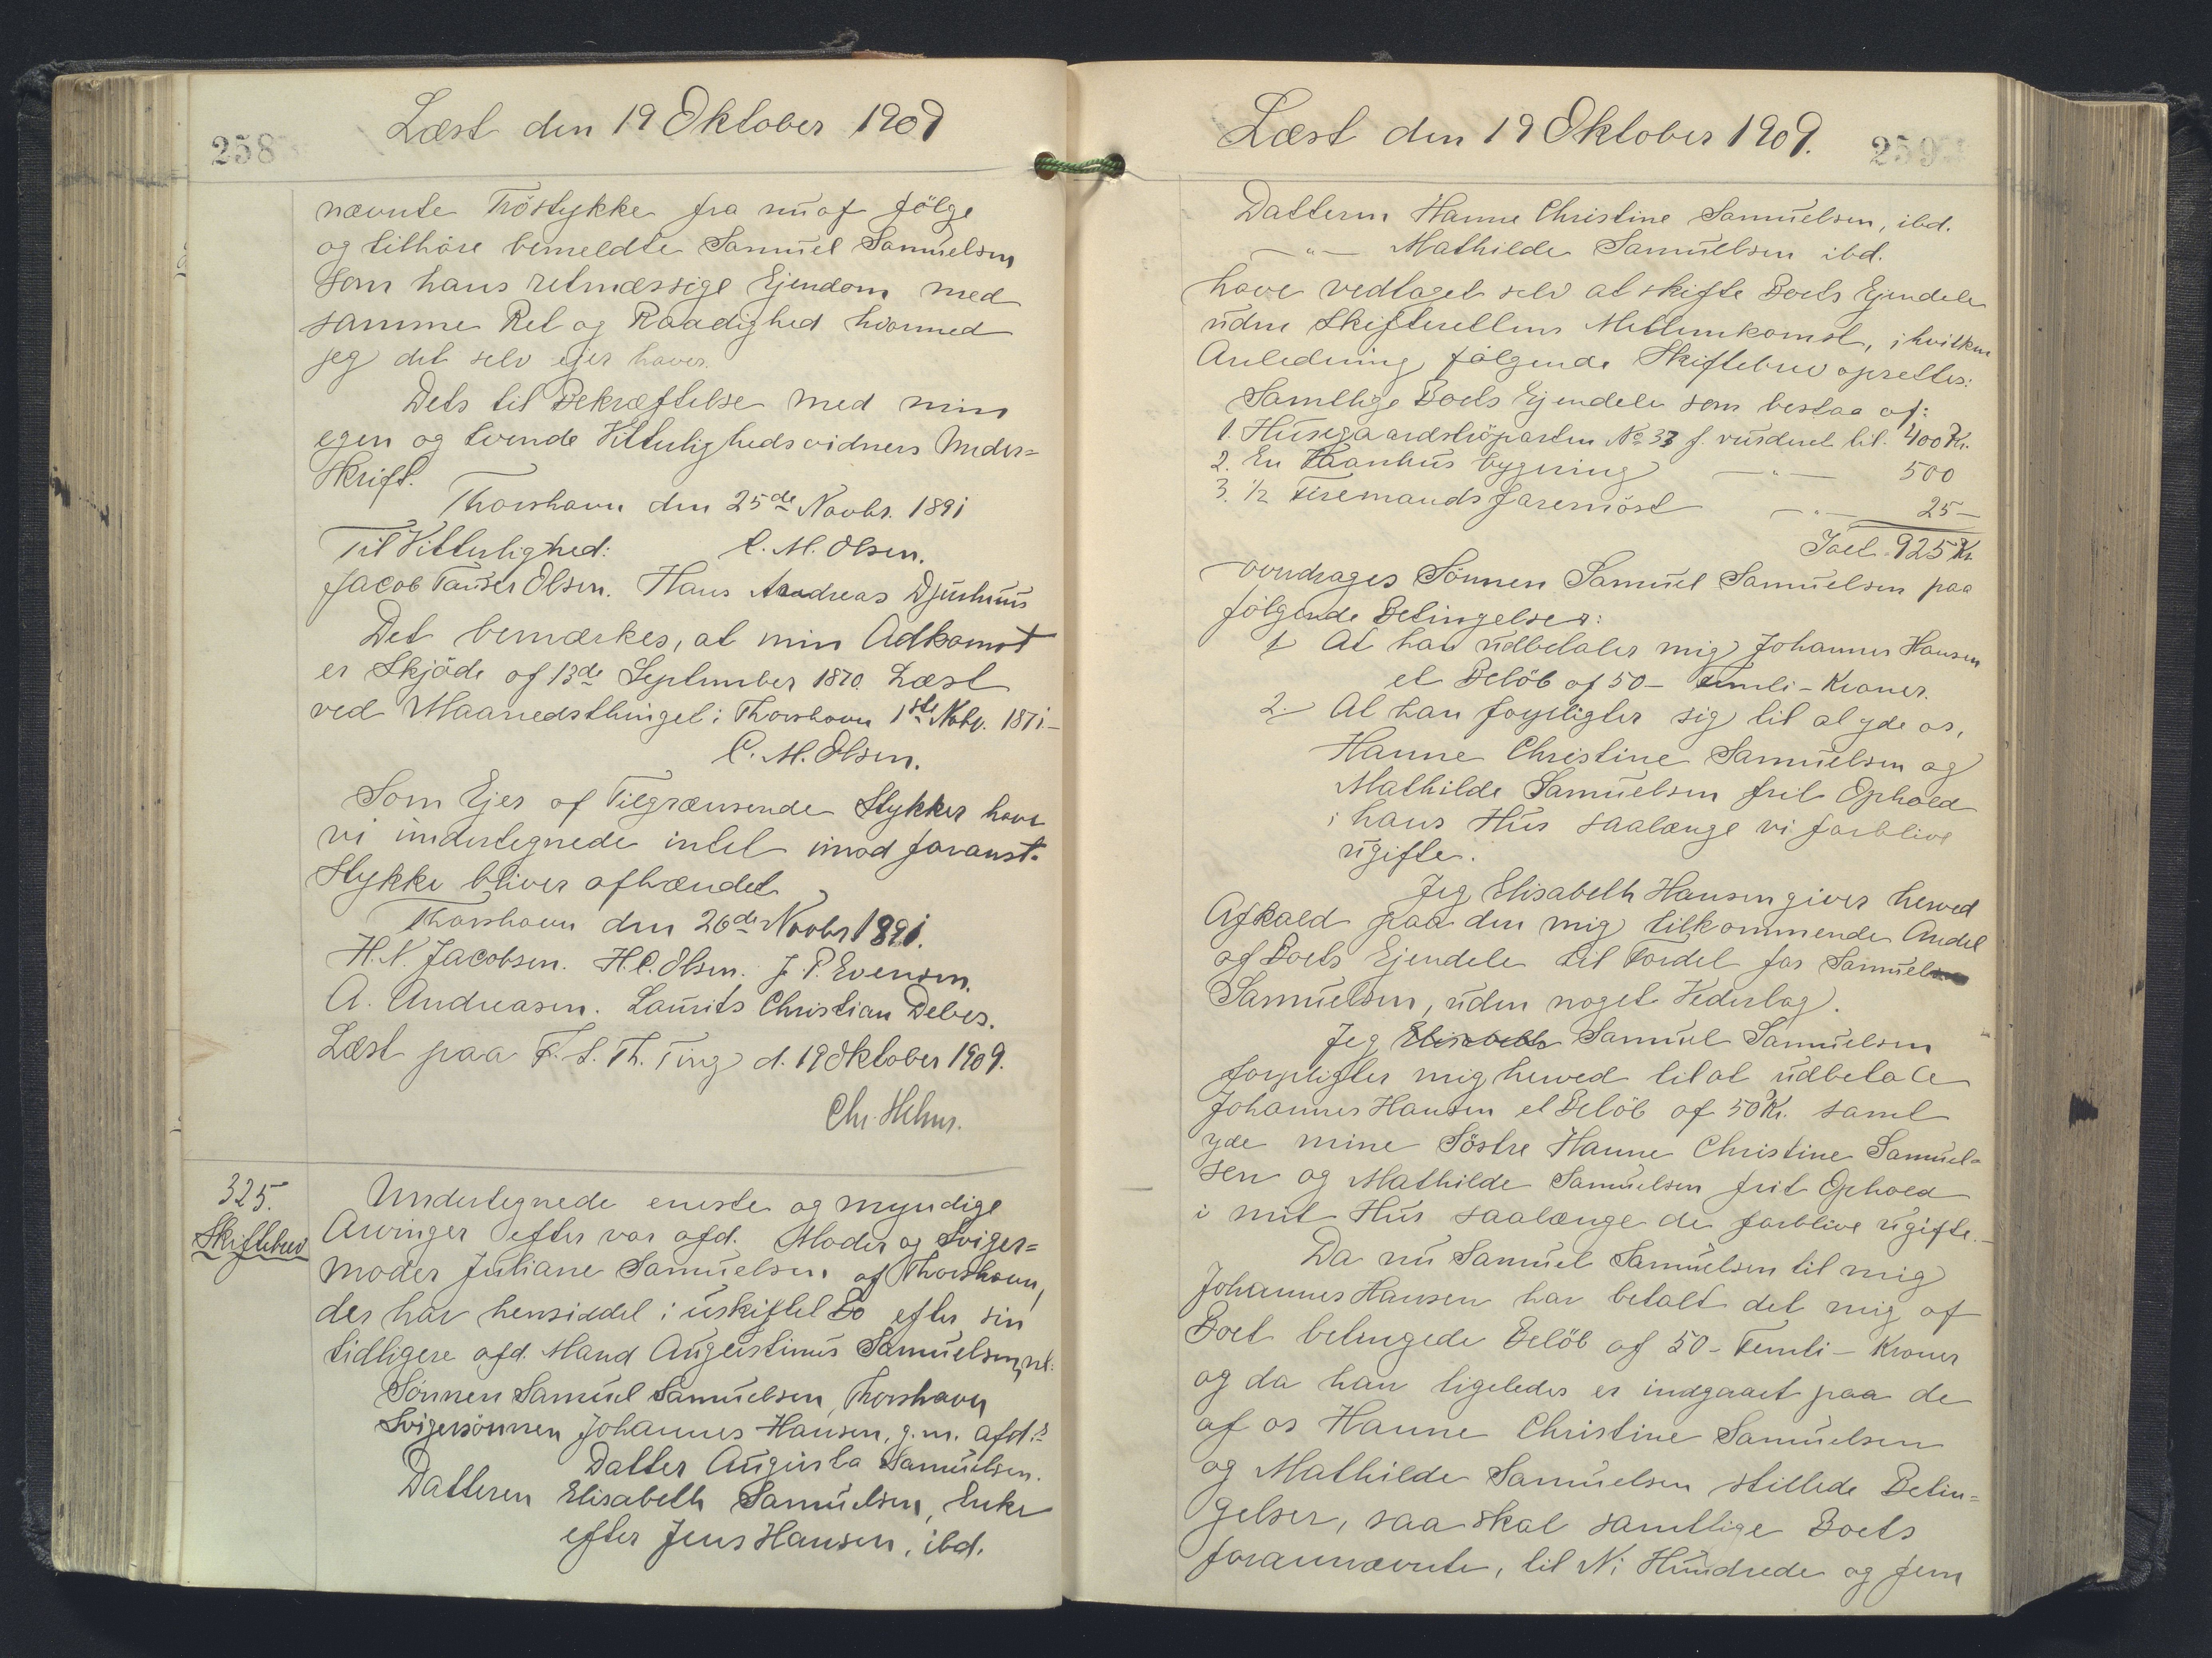 258
Læst den 19 Oktober 1909
nævnte Tröstykke fra nu af følge
og tilhöre bemeldte Samuel Samuelsen
som hans retmæssige Ejendom med
samme Ret og Raadighed hvormed
jeg det selv ejer haver.
Dets til Bekræftelse med min
egen og tvende Vitterlighedsvidners Under=
skrift.
Thorshavn den 25de Novbr. 1891
Til Vitterlighed: C. M. Olsen.
Jacob Tauser Olsen. Hans Andreas Djurhuus
Det bemærkes, at min Adkomst
er Skjöde af 13de September 1870. Læst
ved Maanedsthinget i Thorshavn 1ste Nobr. 1871.-
C. M. Olsen.
Som Ejer af Tilgrænsende Stykker have
vi undertegnede intet imod foranst.
Stykke bliver afhændet
Thorshavn den 26de Novbr 1891.
H. N. Jacobsen. H. C. Olsen. J. P. Evensen.
A. Andreasen. Laurits Christian Debes.
Læst paa F. S. Th. Ting d. 19 Oktober 1909.
Chr.
325.
Skiftebrev
Undertegnede eneste og myndige
Arvinger efter vor afd. Moder og Sviger=
moder Juliane Samuelsen af Thorshavn,
der har hensiddet i uskiftet Bo efter sin
tidligere afd. Mand Augustinus Samuelsen, nl:
Sönnen Samuel Samuelsen, Thorshavn
Svigersönnen Johannes Hansen, g. m. afd.
Datter Augusta Samuelsen.
Datteren Elisabeth Samuelsen, Enke
efter Jens Hansen, ibd.
259
Læst den 19 Oktober 1909.
Datteren Hanne Christine Samuelsen, ibd.
—"— Mathilde Samuelsen ibd.
have vedtaget selv at skifte Boets Ejendele
uden Skifterettens Mellemkomst, i hvilken
Anledning følgende Skiftebrev oprettes:
Samtlige Boets Ejendele som bestaa af:
1. Husegaardströparten No 33 f. vurderet til. 400 Kr.
2. En Vaanhus bygning —"— 500
3. 1/2 Firemandsfarernöst —"— 25 —
Ialt 925 Kr
overdrages Sönnen Samuel Samuelsen paa
følgende Betingelser:
1 At han udbetaler mig Johannes Hansen
et Belöb af 50 - Femti - Kroner.
2. At han forpligter sig til at yde os,
Hanne Christine Samuelsen og
Mathilde Samuelsen frit Ophold
i hans Hus saalænge vi forblive
ugifte.
Jeg Elisabeth Hansen giver herved
Afkald paa den mig tilkommende Andel
af Boets Ejendele til Fordel for Samuel
Samuelsen, uden noget Vederlag.
Jeg Elisabeth Samuel Samuelsen
forpligter mig herved til at udbetale
Johannes Hansen et Belöb af 50 Kr. samt
yde mine Söstre Hanne Christine Samuel=
sen og Mathilde Samuelsen frit Ophold
i mit Hus saalænge de forblive ugifte.-
Da nu Samuel Samuelsen til mig
Johannes Hansen har betalt det mig af
Boet betingede Belöb af 50 - Femti - Kroner
og da han ligeledes er indgaaet paa de
af os Hanne Christine Samuelsen
og Mathilde Samuelsen stillede Betin=
gelser, saa skal samtlige Boets
forannævnte, til Ni Hundrede og fem